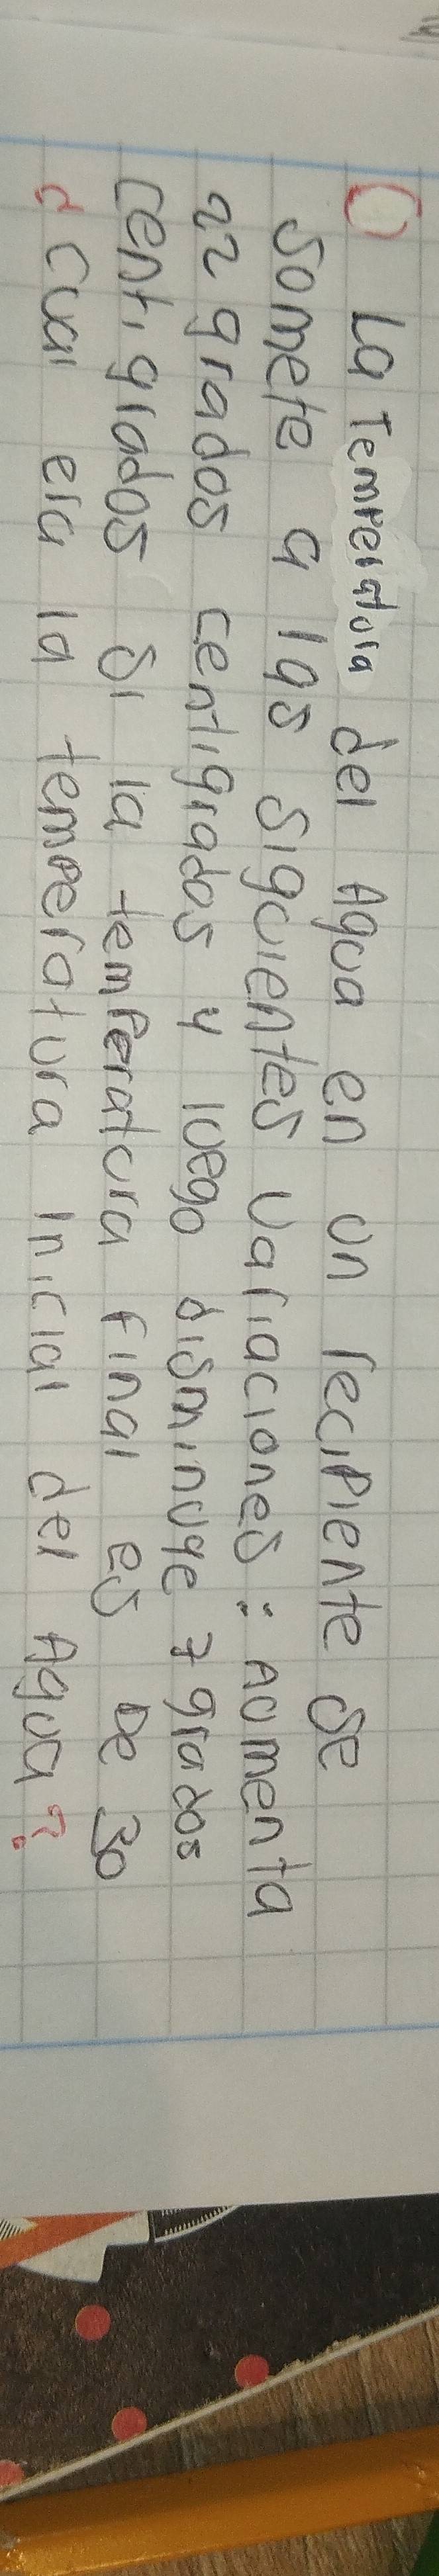 La Temperatura del Agua en un recipiente se
somete a las siguientes variaciones: Aumenta
22 grados centigrados y luego disminuye 7 grados
centigrados si la temperatura final es de 30
¿Cual era la temperatura inicial del Agua?